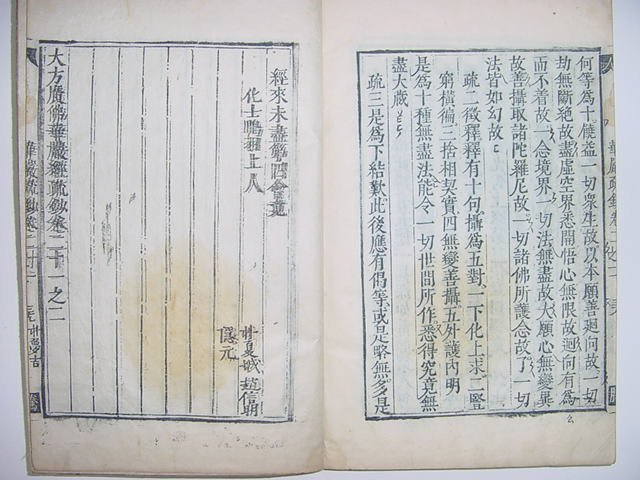 何等爲十饒益一切衆生故以本願善廻向故一切
劫無斷絶故盡虛空界悉開悟心無限故廻向有爲
而不着故一念境界一切法無盡故大願心無變異
故善攝取諸陀羅尼故一切諸佛所護念故了一切
法皆如幻故
疏二徵釋釋有十句攝爲五對一下化上求二豎
窮橫徧三捨相契實四無變善攝五外護內明
是爲十種無盡法能令一切世間所作悉得究竟無
盡大藏
疏三是爲下結歎此後應有偈等或是略無多是
經來未盡第四會竟
化士鵬翔上人
趙信朝
隱元
大方廣佛華嚴經疏鈔卷二十一之二
華嚴疏鈔卷